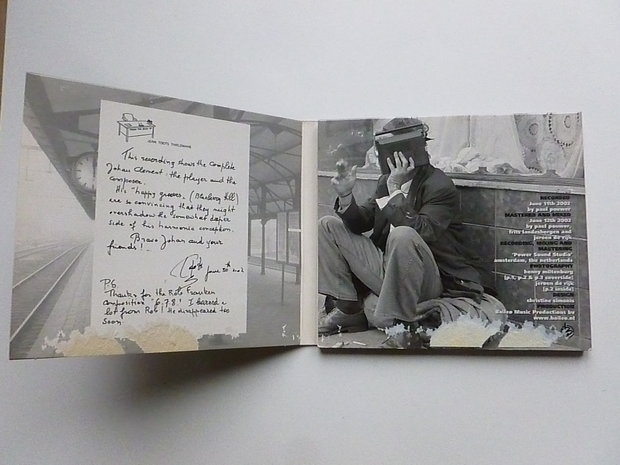 JEAN TOOTS THIELEMANS
This recording shows the complete
Johan Clement the player and the
composer.
His "happy grooves" (Blueberry Hill)
are so convincing that they might
overshadow the somewhat darker
side of his harmonic conception.
Bravo Johan and your
friends!
June 30th 2002
PS
Thanks for the Rob Franken
composition "6.7.8.! I learned a
lot from Rob! He disappeared too
soon
RECORDED
June 11th 2002
by paul pouwer
MASTERED AND MIXED
June 12th 2002
by paul pouwer,
frits landesbergen and
jeroen de rijk
RECORDING, MIXING AND
MASTERING
'Power Sound Studio'
amsterdam, the netherlands
PHOTOGRAPHY
henny miltenburg
(p.1, p.2 & p.3 coverside)
jeroen de rijk
(p.2 inside)
christine simonis
PRODUCTION
Baileo Music Productions bv
www.baileo.nl